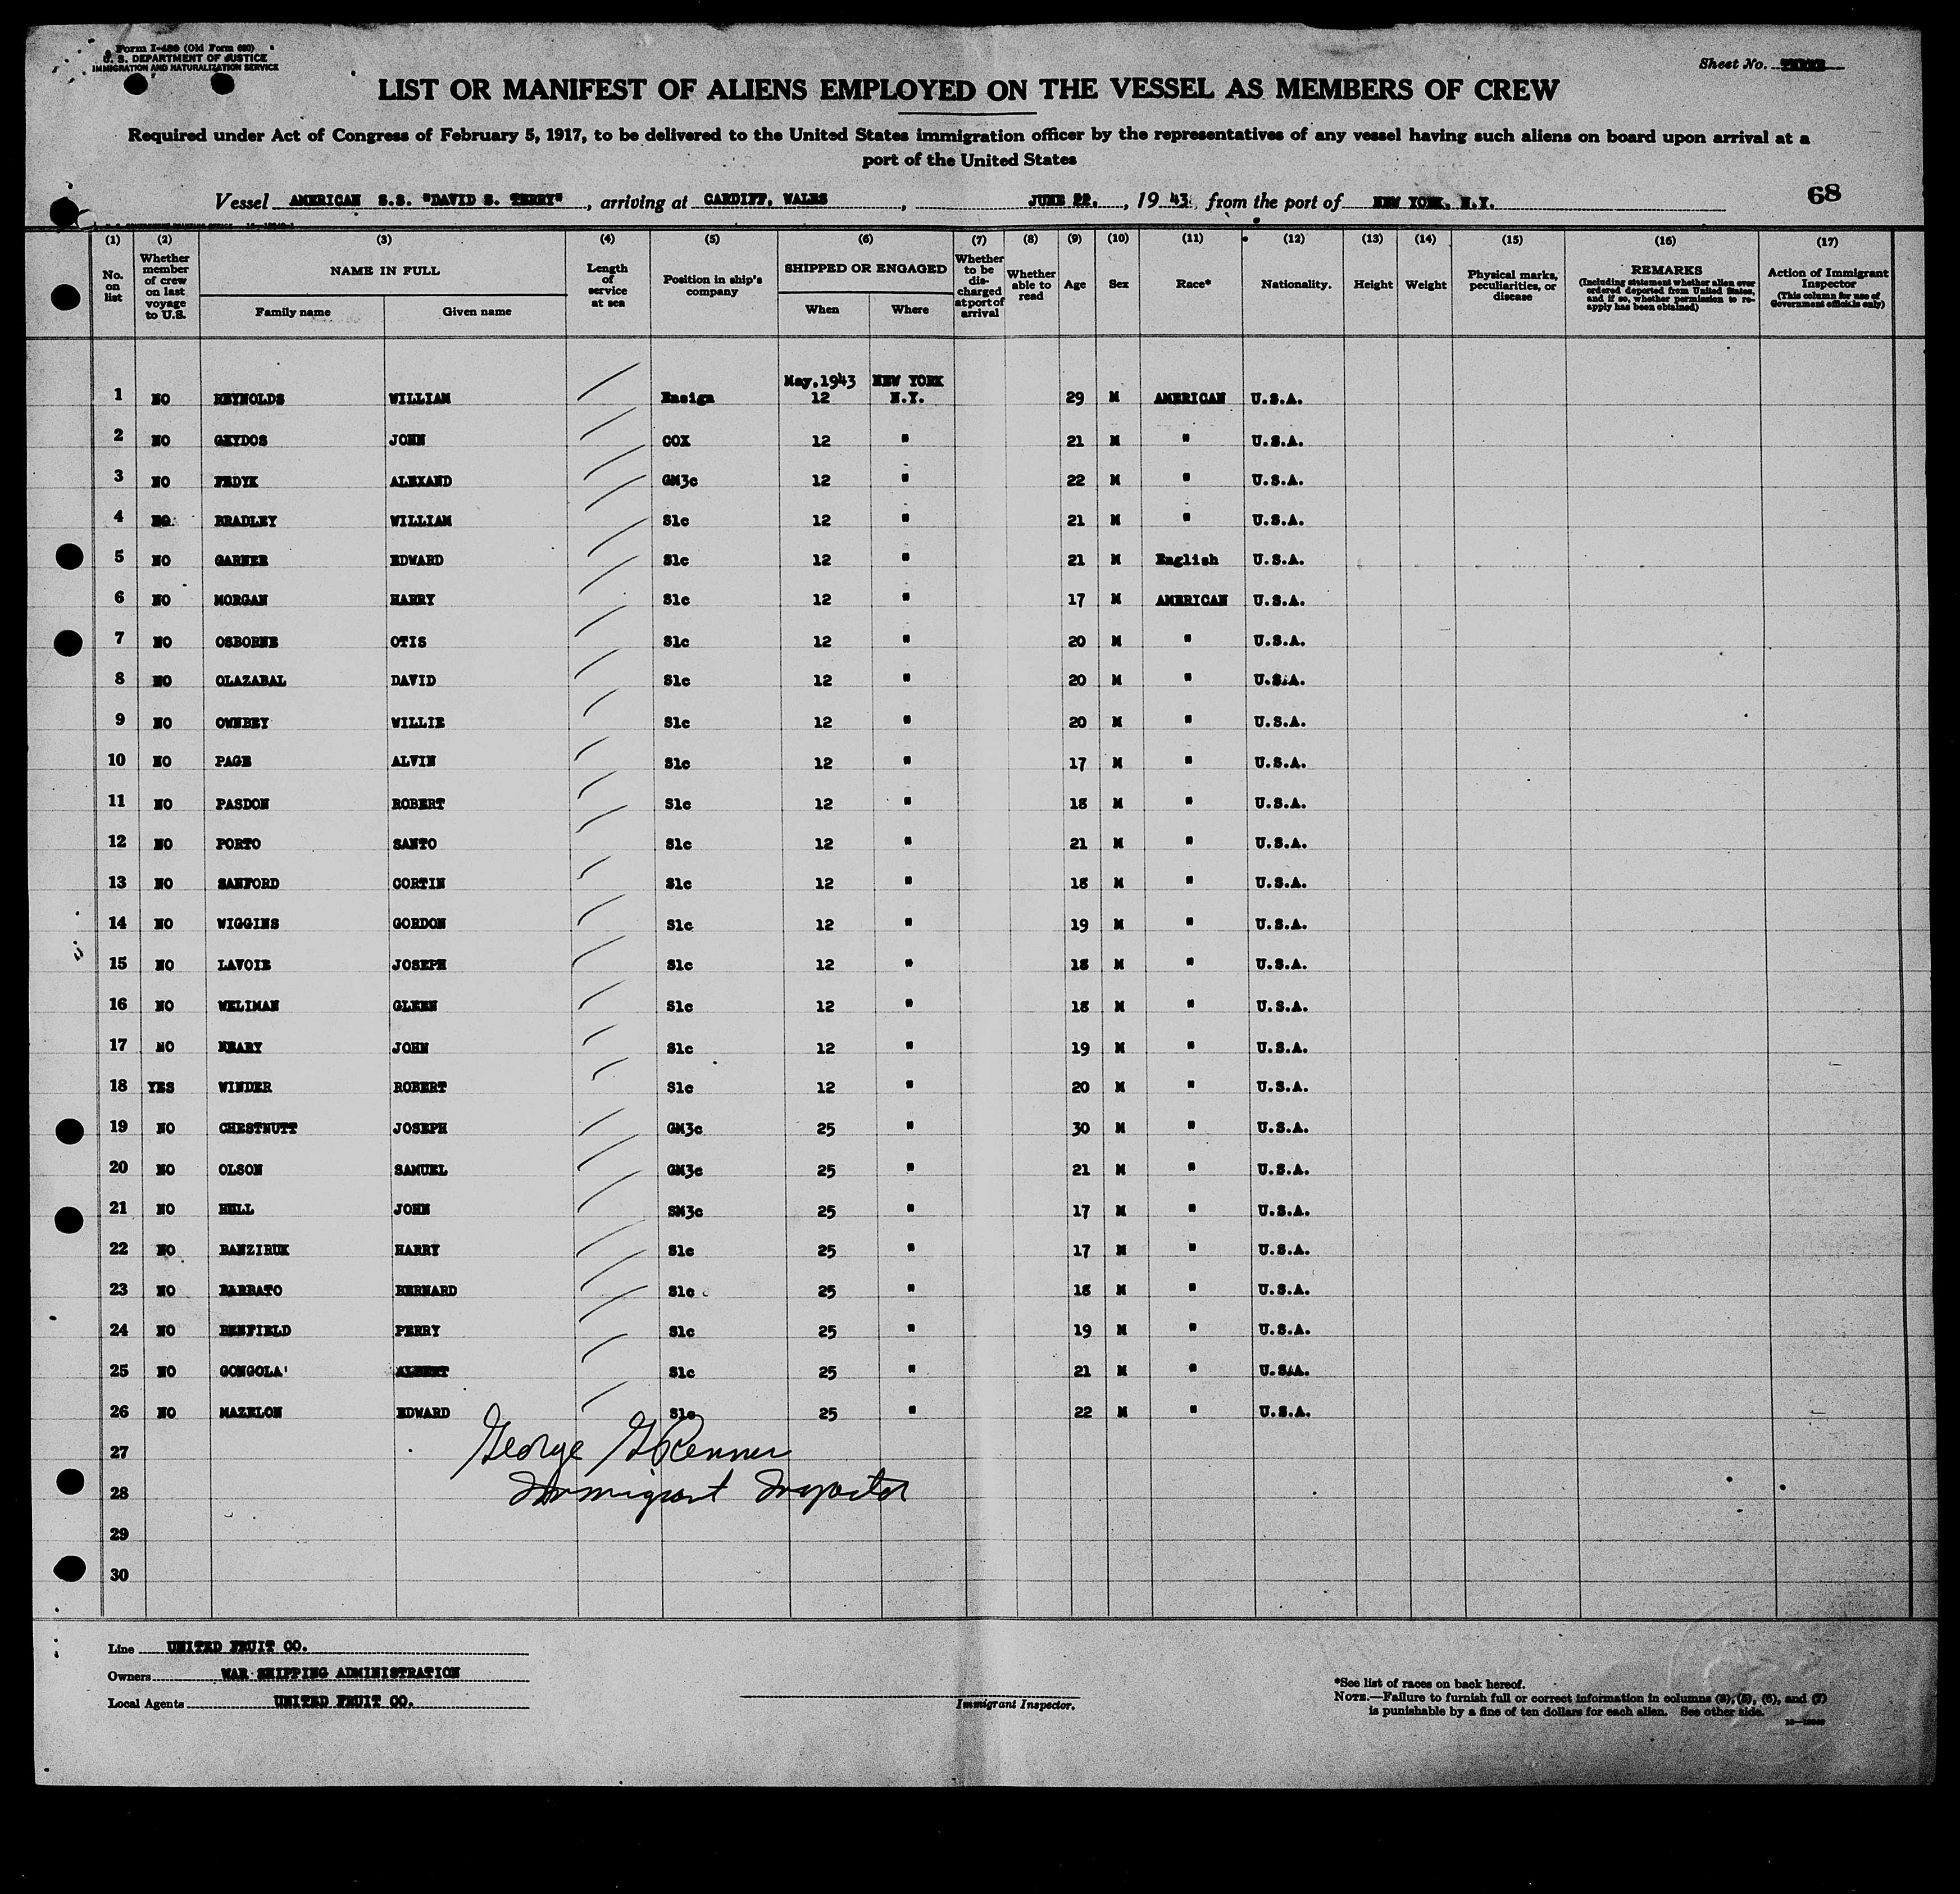 Form I-480 (Old Form 680)
U. S. DEPARTMENT OF JUSTICE
IMMIGRATION AND NATURALIZATION SERVICE
Sheet No. THREE
LIST OR MANIFEST OF ALIENS EMPLOYED ON THE VESSEL AS MEMBERS OF CREW
Required under Act of Congress of February 5, 1917, to be delivered to the United States immigration officer by the representatives of any vessel having such aliens on board upon arrival at a
port of the United States
68
Vessel AMERICAN S.S. "DAVID S. TERRY", arriving at CARDIFF, WALES, JUNE 22., 19 43, from the port of NEW YORK, N.Y.
(1) (2) (3) (4) (5) (6) (7) (8) (9) (10) (11) (12) (13) (14) (15) (16) (17)
No. on list
Whether member of crew on last voyage to U.S.
NAME IN FULL
Family name Given name
Length of service at sea
Position in ship's company
SHIPPED OR ENGAGED
When Where
Whether to be discharged at port of arrival
Whether able to read
Age
Sex
Race*
Nationality.
Height
Weight
Physical marks, peculiarities, or disease
REMARKS
(Including statement whether alien ever ordered deported from United States, and if so, whether permission to reapply has been obtained)
Action of Immigrant Inspector
(This column for use of Government officials only)
May, 1943 NEW YORK
1 NO REYNOLDS WILLIAM Ensign 12 N.Y. 29 M AMERICAN U.S.A.
2 NO GKYDOS JOHN COX 12 " 21 M " U.S.A.
3 NO FEDYK ALEXAND GM3c 12 " 22 M " U.S.A.
4 NO. BRADLEY WILLIAM S1c 12 " 21 M " U.S.A.
5 NO GARNER EDWARD S1c 12 " 21 M English U.S.A.
6 NO MORGAN HARRY S1c 12 " 17 M AMERICAN U.S.A.
7 NO OSBORNE OTIS S1c 12 " 20 M " U.S.A.
8 NO OLAZABAL DAVID S1c 12 " 20 M " U.S.A.
9 NO OWNBEY WILLIE S1c 12 " 20 M " U.S.A.
10 NO PAGE ALVIN S1c 12 " 17 M " U.S.A.
11 NO PASDON ROBERT S1c 12 " 18 M " U.S.A.
12 NO PORTO SANTO S1c 12 " 21 M " U.S.A.
13 NO SANFORD CORTIN S1c 12 " 18 M " U.S.A.
14 NO WIGGINS GORDON S1c 12 " 19 M " U.S.A.
15 NO LAVOIE JOSEPH S1c 12 " 18 M " U.S.A.
16 NO WELIMAN GLEEN S1c 12 " 18 M " U.S.A.
17 NO NEARY JOHN S1c 12 " 19 M " U.S.A.
18 YES WINDER ROBERT S1c 12 " 20 M " U.S.A.
19 NO CHESTNUTT JOSEPH GM3c 25 " 30 M " U.S.A.
20 NO OLSON SAMUEL GM3c 25 " 21 M " U.S.A.
21 NO BELL JOHN SM3c 25 " 17 M " U.S.A.
22 NO BANZIRUK HARRY S1c 25 " 17 M " U.S.A.
23 NO BARBATO BERNARD S1c 25 " 18 M " U.S.A.
24 NO BENFIELD PERRY S1c 25 " 19 M " U.S.A.
25 NO GONGOLA' ALBERT S1c 25 " 21 M " U.S.A.
26 NO MAZELON EDWARD S1c 25 " 22 M " U.S.A.
27 George
28 Immigrant Inspector
29
30
Line UNITED FRUIT CO.
Owners WAR SHIPPING ADMINISTRATION
Local Agents UNITED FRUIT CO.
Immigrant Inspector.
*See list of races on back hereof.
NOTE.—Failure to furnish full or correct information in columns (3), (5), (6), and (7)
is punishable by a fine of ten dollars for each alien. See other side.